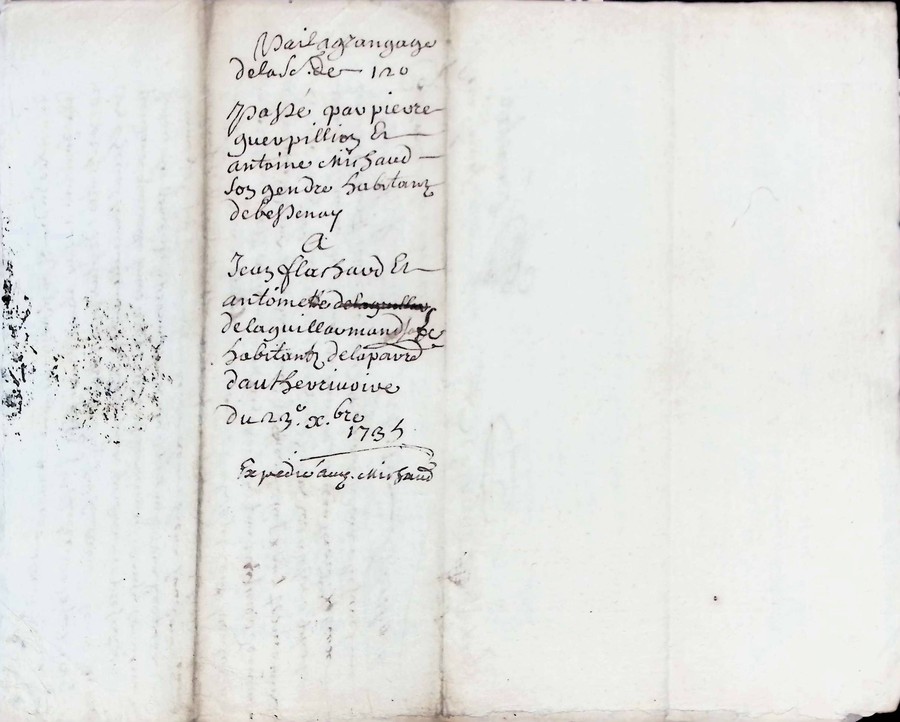 Bail agrangage
de la so. de 120
Passé par pierre
guerpillion Et
antoine Michaud
son gendre habitantz
de bessenay
A
Jean flachaud Et
antoinette
de laguillaumand
habitantz de la parr
d'autheurivoire
du 23e. x.bre
1735
Expedié aud. Michaud